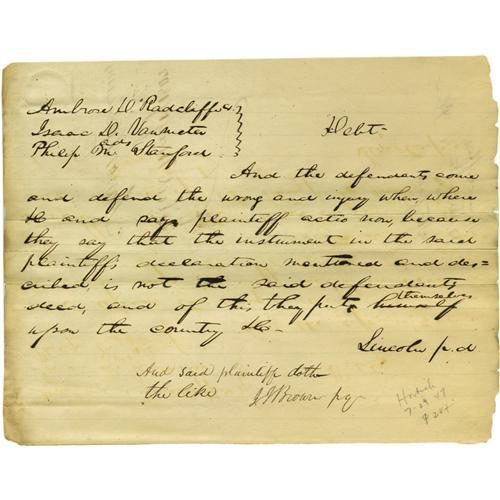 Ambrose D. Radcliff &
Isaac D. Vanmeter
Philip Stanford
Debt-
And the defendants come
and defend the wrong and injury when, where
&c and say plaintiff actio non, because
they say that the instrument in the said
plaintiff's declaration mentioned and des=
cribed is not the said defendants
deed, and of this they put themselves
upon the country &c-
Lincoln p.d.
And said plaintiff doth
the like Brown pq
7-29 47